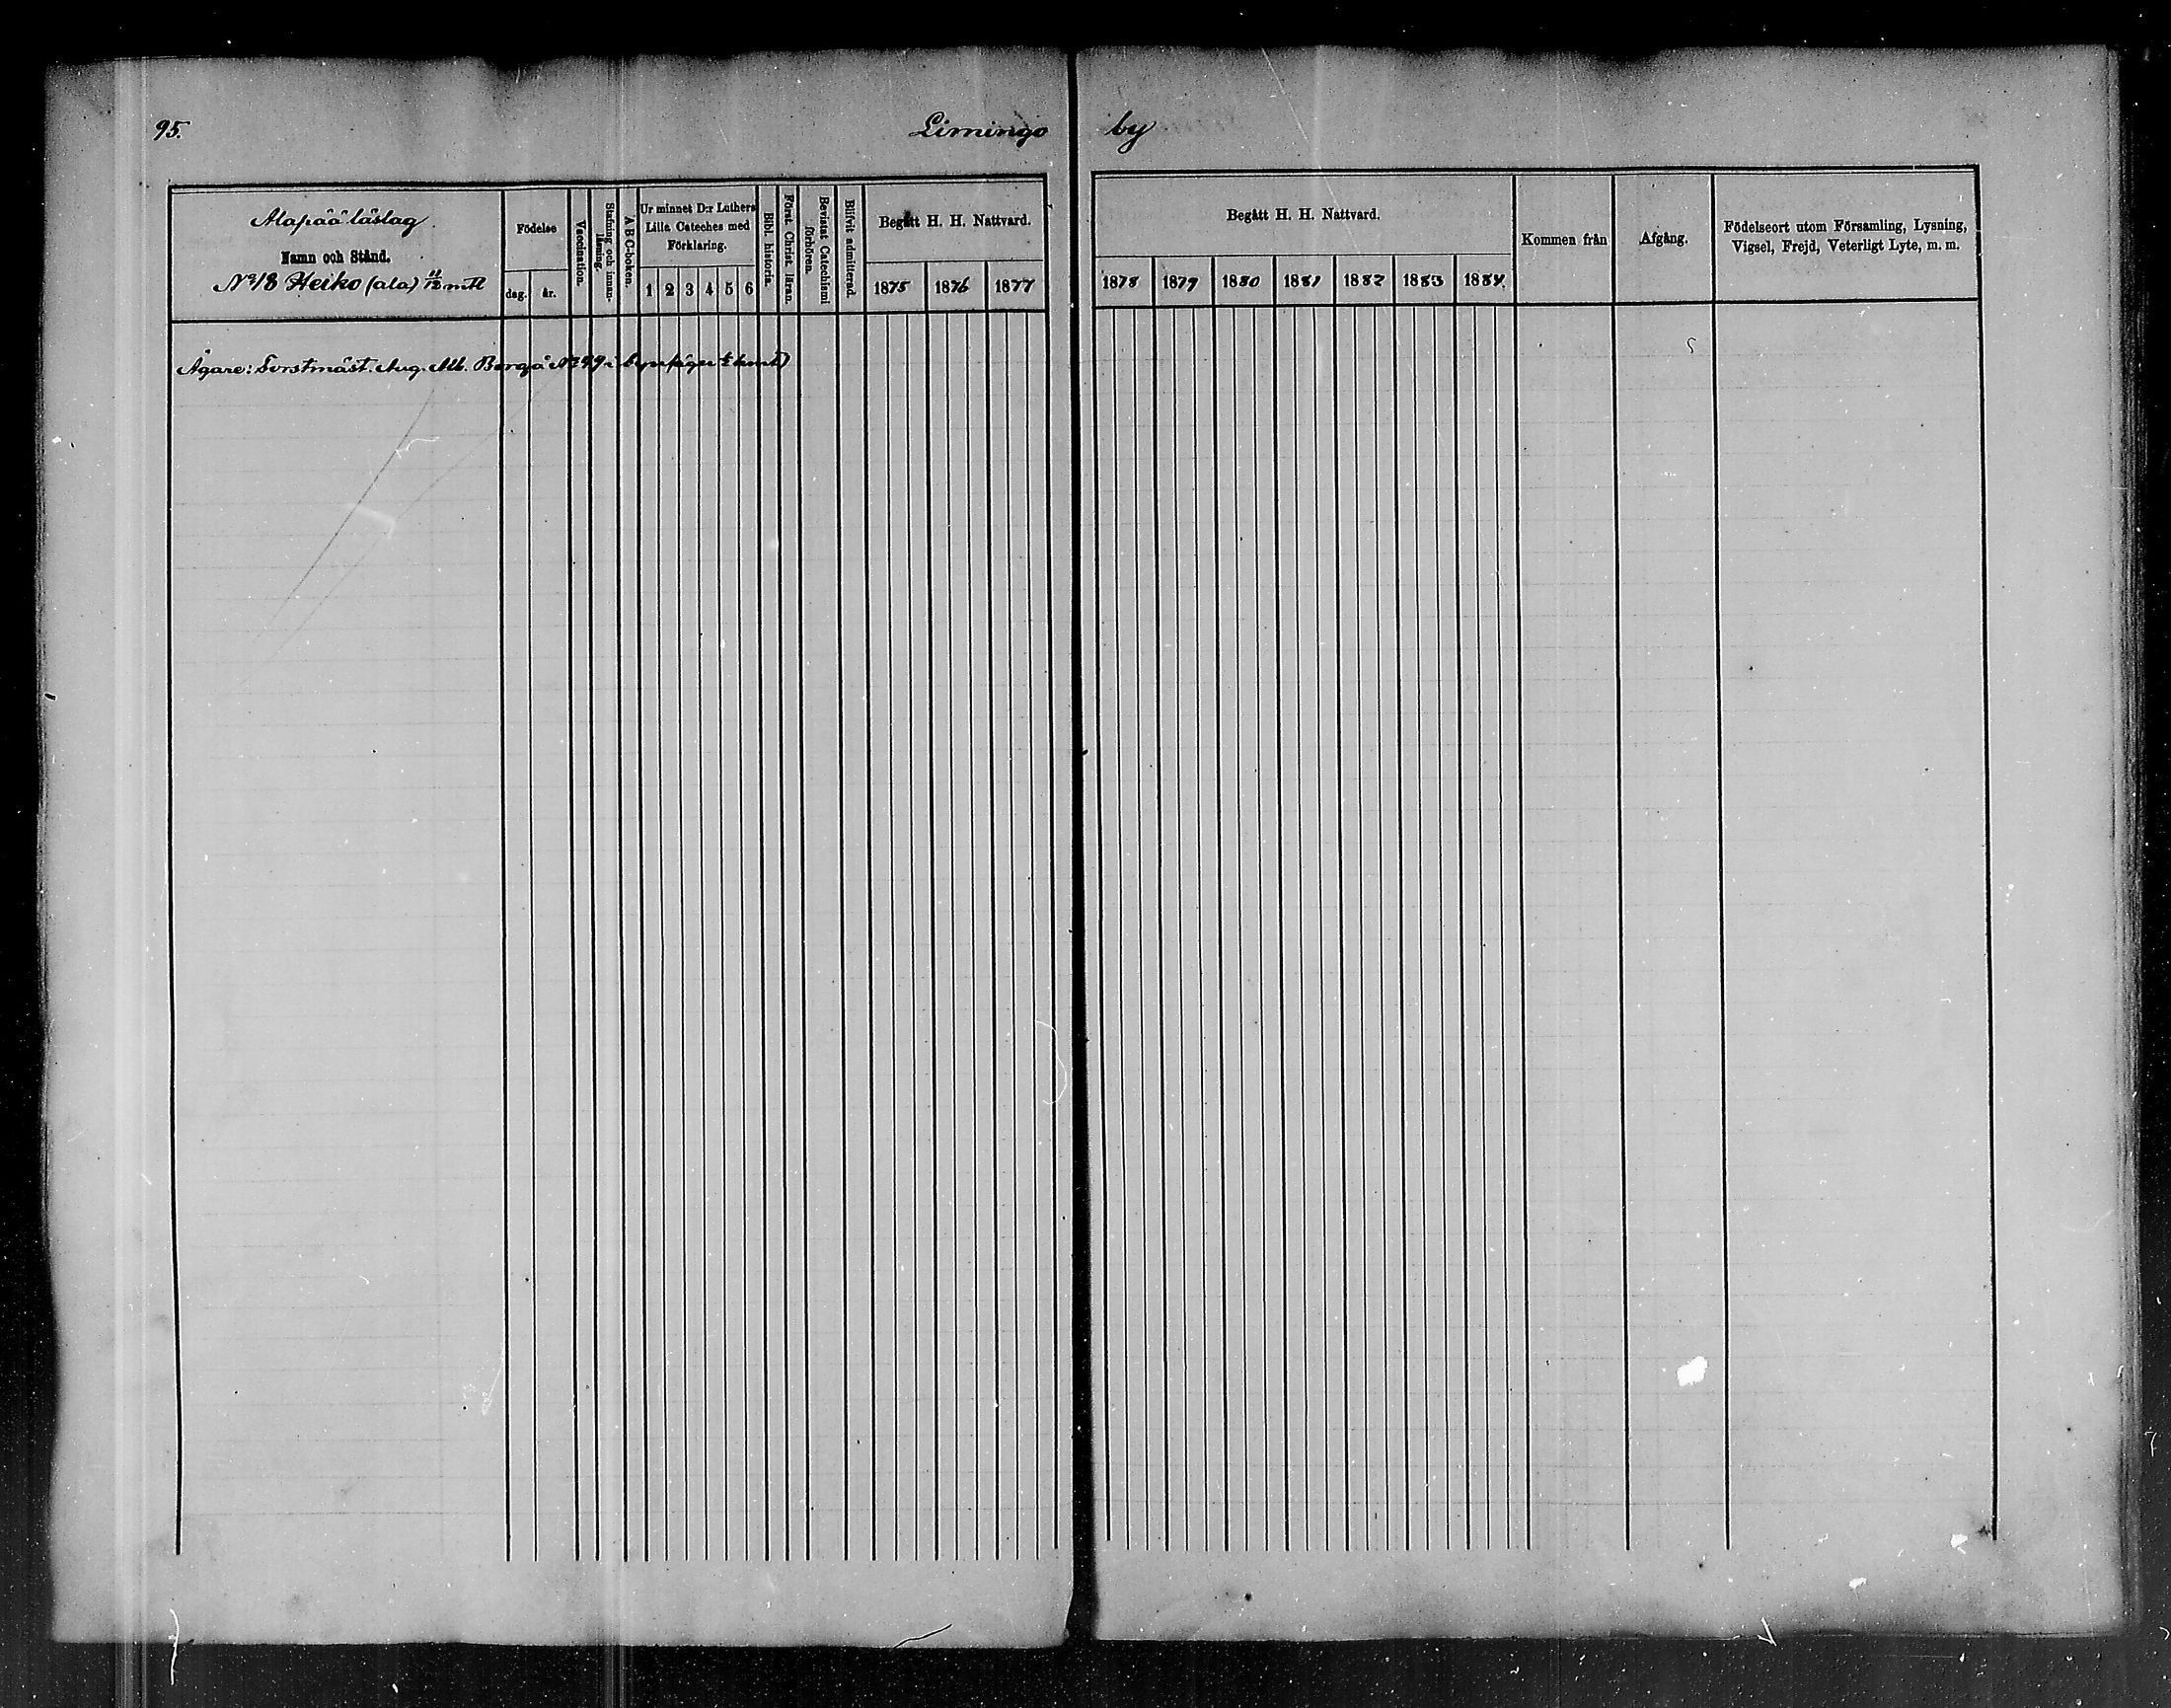 95.
Limingo by
Alapää läslag.
Namn och Stånd.
No 18 Heiko (ala) 11/12 mtl
Födelse
dag.
år.
Vaccination.
Stafning och innanläsning.
A B C-boken.
Ur minnet D:r Luthers
Lilla Cateches med
Förklaring.
1 2 3 4 5 6
Bibl. historia.
Först. Christ. läran.
Bevistat Catechismi förhören.
Blifvit admitterad.
Begått H. H. Nattvard.
1875 1876 1877
Begått H. H. Nattvard.
1878 1879 1880 1881 1882 1883 1884.
Kommen från
Afgång.
Födelseort utom Församling, Lysning,
Vigsel, Frejd, Veterligt Lyte, m. m.
Ägare: Forstmäst. Aug. Alb. Borg å No 49 i byn